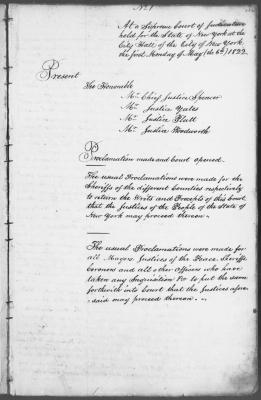 No. 1
At a Supreme Court of Judicature
held for the State of New York at the
City Hall of the City of New York
the first Monday of May (the 6th) 1822
Present
The Honorable
Mr. Chief Justice Spencer
Mr. Justice Yates
Mr. Justice Platt
Mr. Justice Woodworth
Proclamation made and Court opened.
The usual Proclamations were made for the
Sheriffs of the different Counties respectively
to return the Writs and Precepts of this Court
that the Justices of the People of the State of
New York may proceed thereon.
The usual Proclamations were made for
all Mayors, Justices of the Peace, Sheriffs
Coroners and all other Officers who have
taken any Inquisition &c to put the same
forthwith into Court that the Justices afore-
said may proceed thereon.